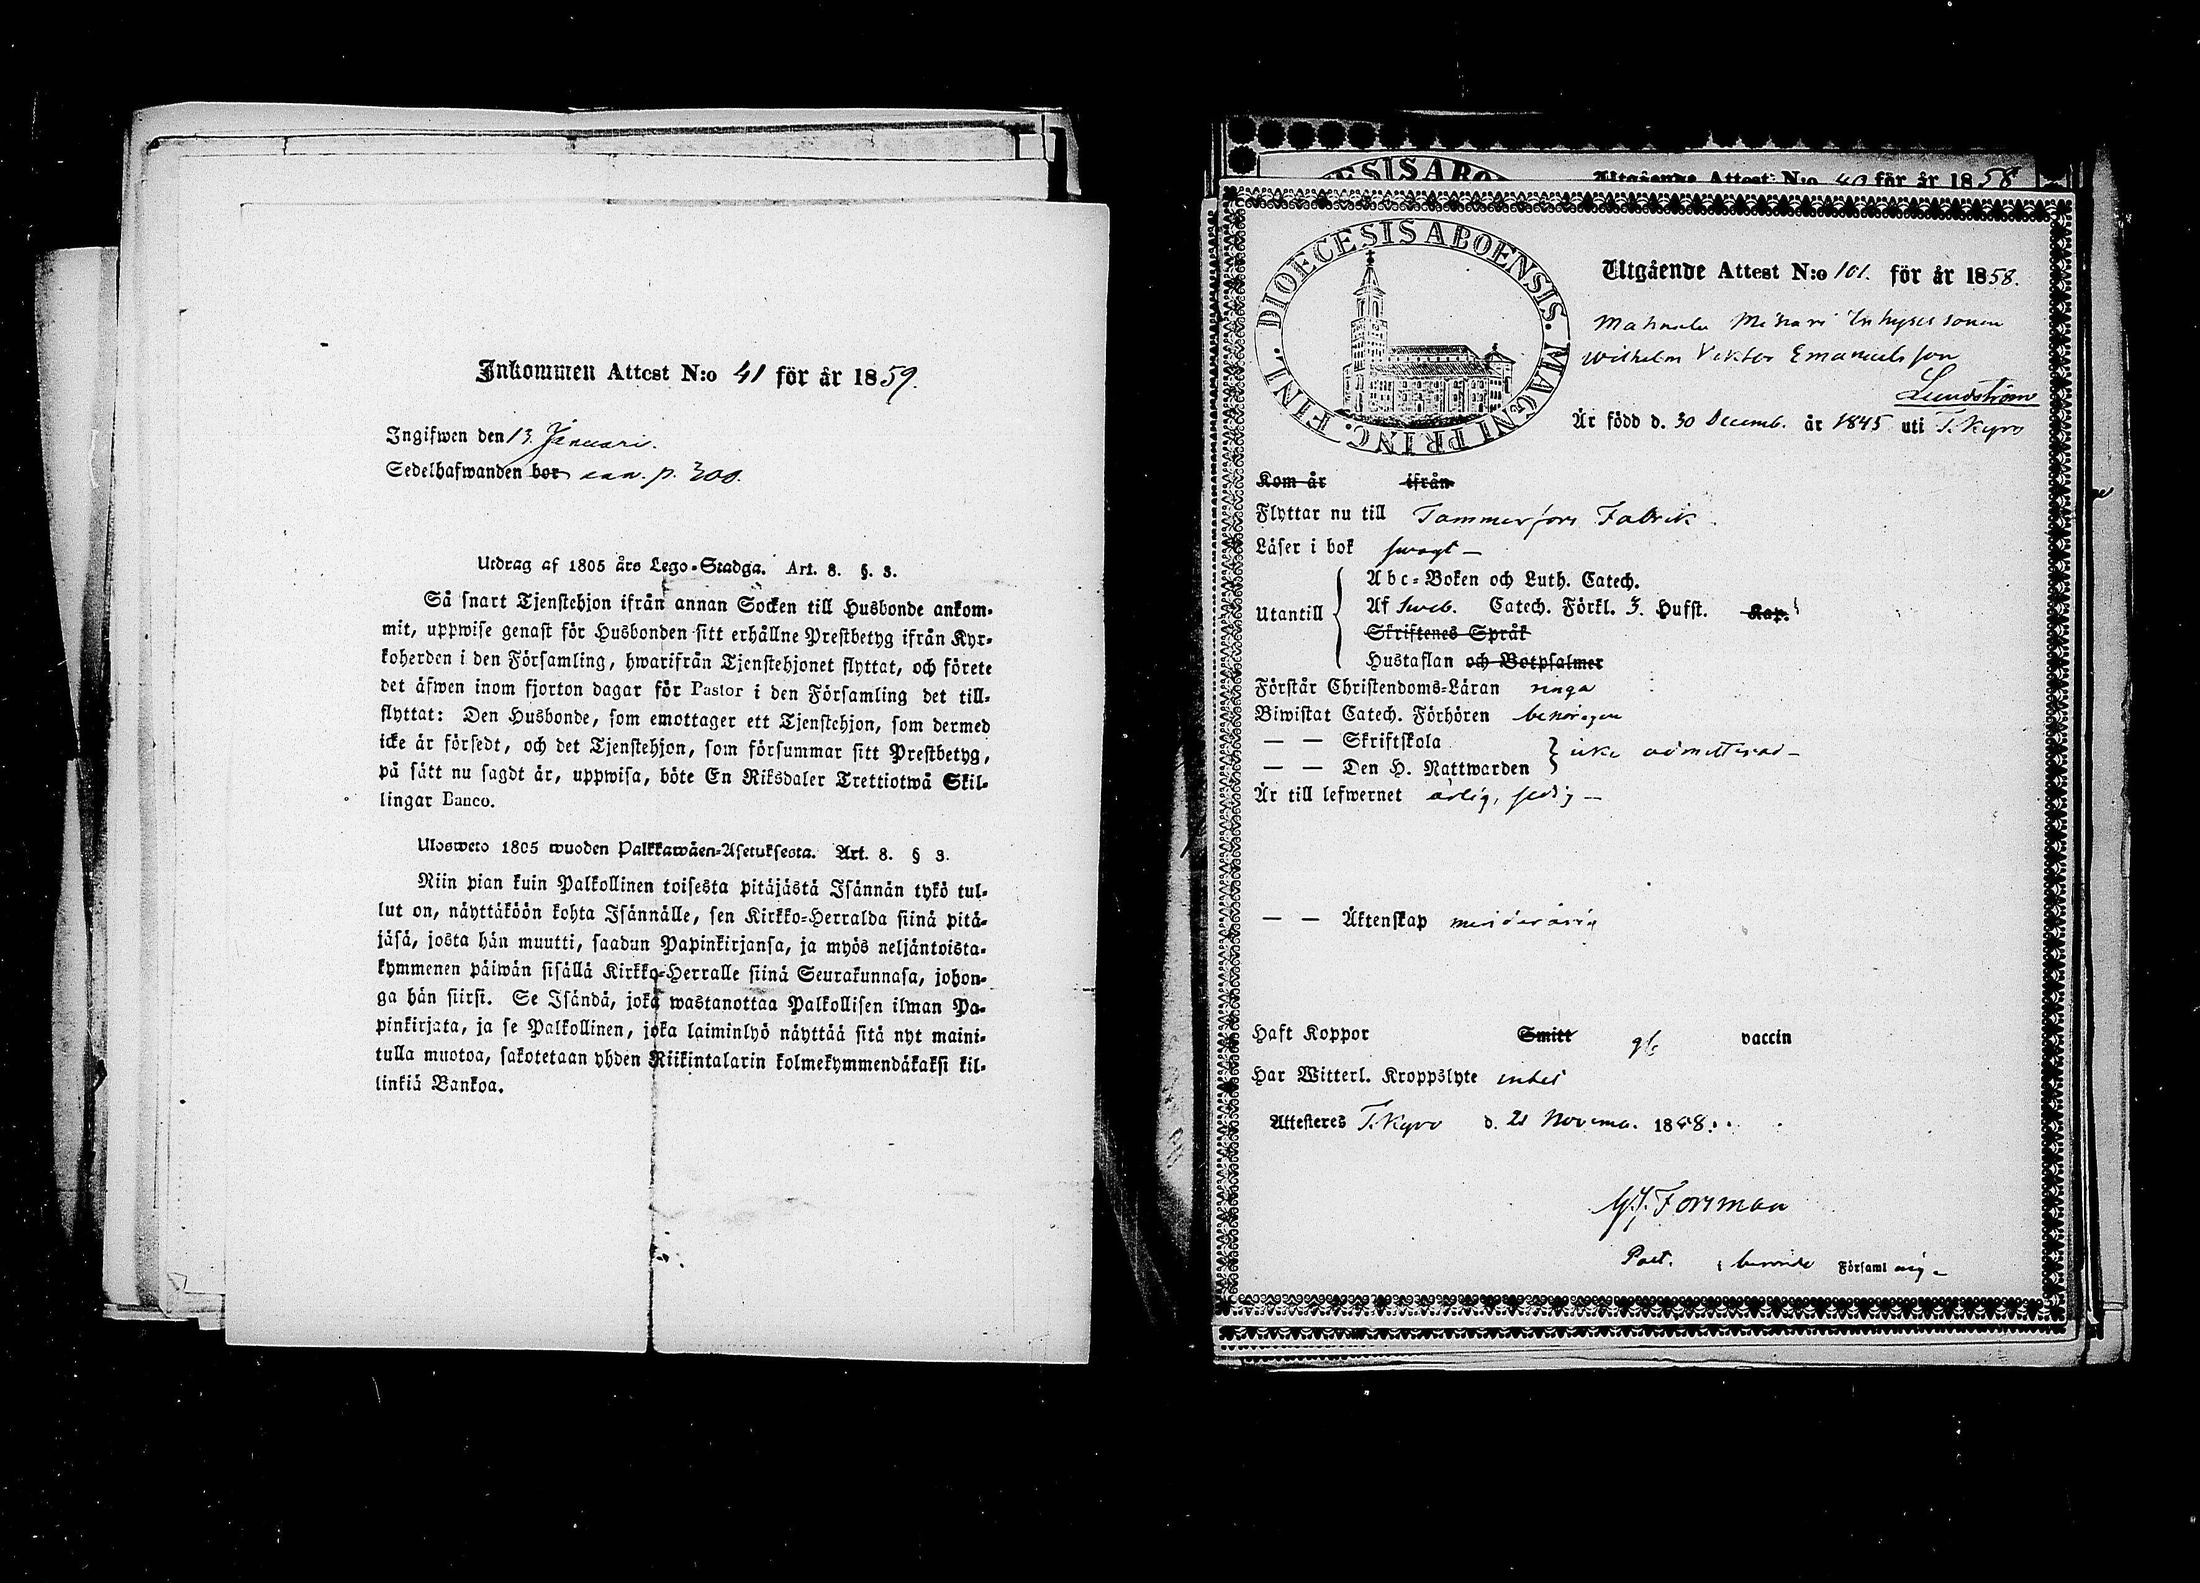 Inkommen Attest N:o 41 för år 1859.
Ingifwen den 13 Januari.
Sedelhafwanden bor p. 300.
Utdrag af 1805 års Lego-Stadga. Art. 8. §. 3.
Så snart Tjenstehjon ifrån annan Socken till Husbonde ankom-
mit, uppwise genast för Husbonden sitt erhållne Prestbetyg ifrån Kyr-
koherden i den Församling, hwarifrån Tjenstehjonet flyttat, och förete
det äfwen inom fjorton dagar för Pastor i den Församling det till-
flyttat: Den Husbonde, som emottager ett Tjenstehjon, som dermed
icke är försedt, och det Tjenstehjon, som försummar sitt Prestbetyg,
på sätt nu sagdt är, uppwisa, böte En Riksdaler Trettiotwå Skil-
lingar Banco.
Ulosweto 1805 wuoden Palkkawäen-Asetuksesta. Art. 8. § 3.
Niin pian kuin Palkollinen toisesta pitäjästä Isännän tykö tul-
lut on, näyttäköön kohta Isännälle, sen Kirkko-Herralda siinä pitä-
jäsä, josta hän muutti, saadun Papinkirjansa, ja myös neljäntoista-
kymmenen päiwän sisällä Kirkko-Herralle siinä Seurakunnasa, johon-
ga hän siirsi. Se Isändä, joka wastanottaa Palkollisen ilman Pa-
pinkirjata, ja se Palkollinen, joka laiminlyö näyttää sitä nyt maini-
tulla muotoa, sakotetaan yhden Riikintalarin kolmekymmendäkaksi kil-
linkiä Bankoa.
ESIS ABO
Utgående Attest N:o 40 för år 1858
DIOECESIS ABOENSIS. MAGNI PRINC. FINL.
Utgående Attest N:o 101. för år 1858.
Inhyses sonen
Wilhelm Viktor Emanuelsson
Lundström
Är född d. 30 Decemb. år 1845 uti T. Kyro
Kom år ifrån
Flyttar nu till Tammerfors Fabrik.
Läser i bok swagt —
Utantill
Abc-Boken och Luth. Catech.
Af Sweb. Catech. Förkl. 3. Hufst. Kap.
Skriftenes Språk
Hustaflan och Botpsalmer
Förstår Christendoms-Läran ringa
Biwistat Catech. Förhören behörigen
— — Skriftskola
— — Den H. Nattwarden icke admitterad —
Är till lefwernet ärlig, sedig —
— — Äktenskap minderårig
Haft Koppor Smitt gb vaccin
Har Witterl. Kroppslyte intet
Attesteres T. Kyro d. 21 Novemb. 1858.
Forsman
Past. i berörde Församling –